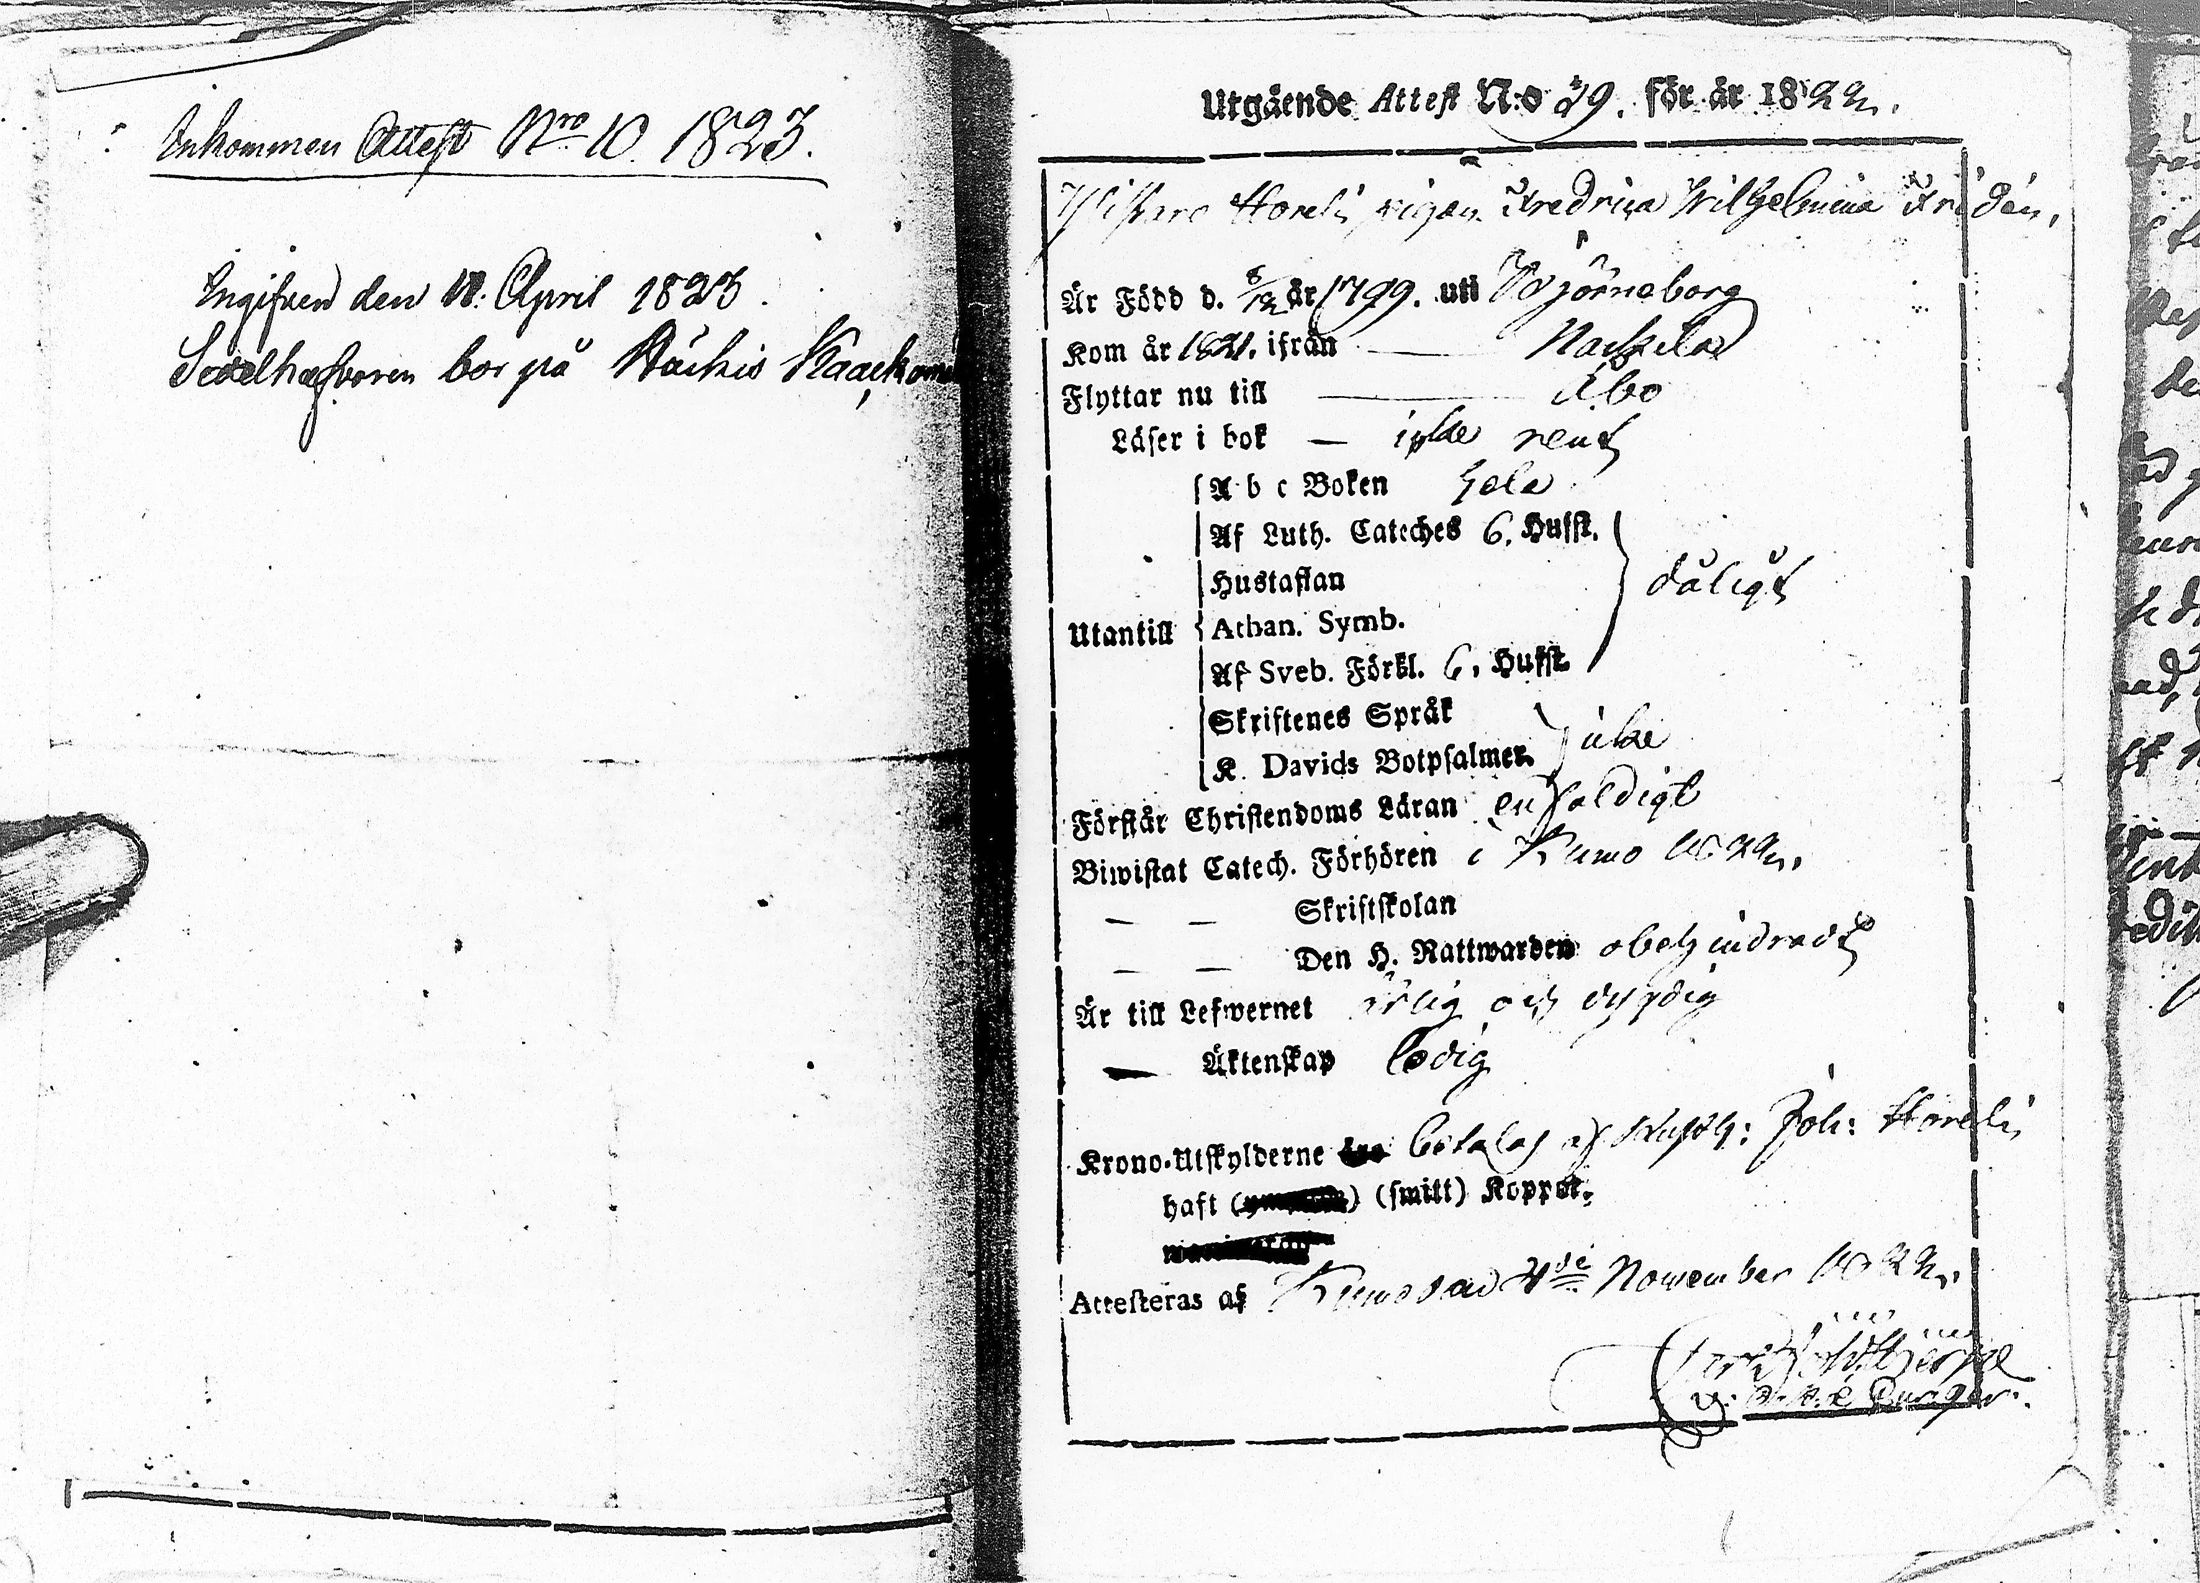 Inkommen Attest Nro 10. 1823.
Ingifven den 18: April 1823.
Sedelhafvaren bor på Räckis
Utgående Attest N:o 39. för år 1822.
Horelii pigan Fredrica Wilhelmina Fridén,
Är Född d. 8/12 år 1799. uti Björneborg
Kom år 1821. ifrån — Nackila
Flyttar nu till — Åbo
Läser i bok — icke rent
A b c Boken hela
Af Luth. Cateches 6, Hufst.
Hustaflan
dåligt
Utantill
Athan. Symb.
Af Sveb. Förkl. 6, Hufst.
Skriftenes Språk
icke
K. Davids Botpsalmer.
Förstår Christendoms Läran enfaldigt
Biwistat Catech. Förhören i Kumo 1822.
— — Skriftskolan
— — Den H. Nattwarden obehindradt
Är till Lefwernet ärlig och dygdig
— Äktenskap ledig
Krono-Utskylderne betalas af Joh: Horelii
haft (smitt) Koppor.
Attesteras af Kumo d 4de November 1822.